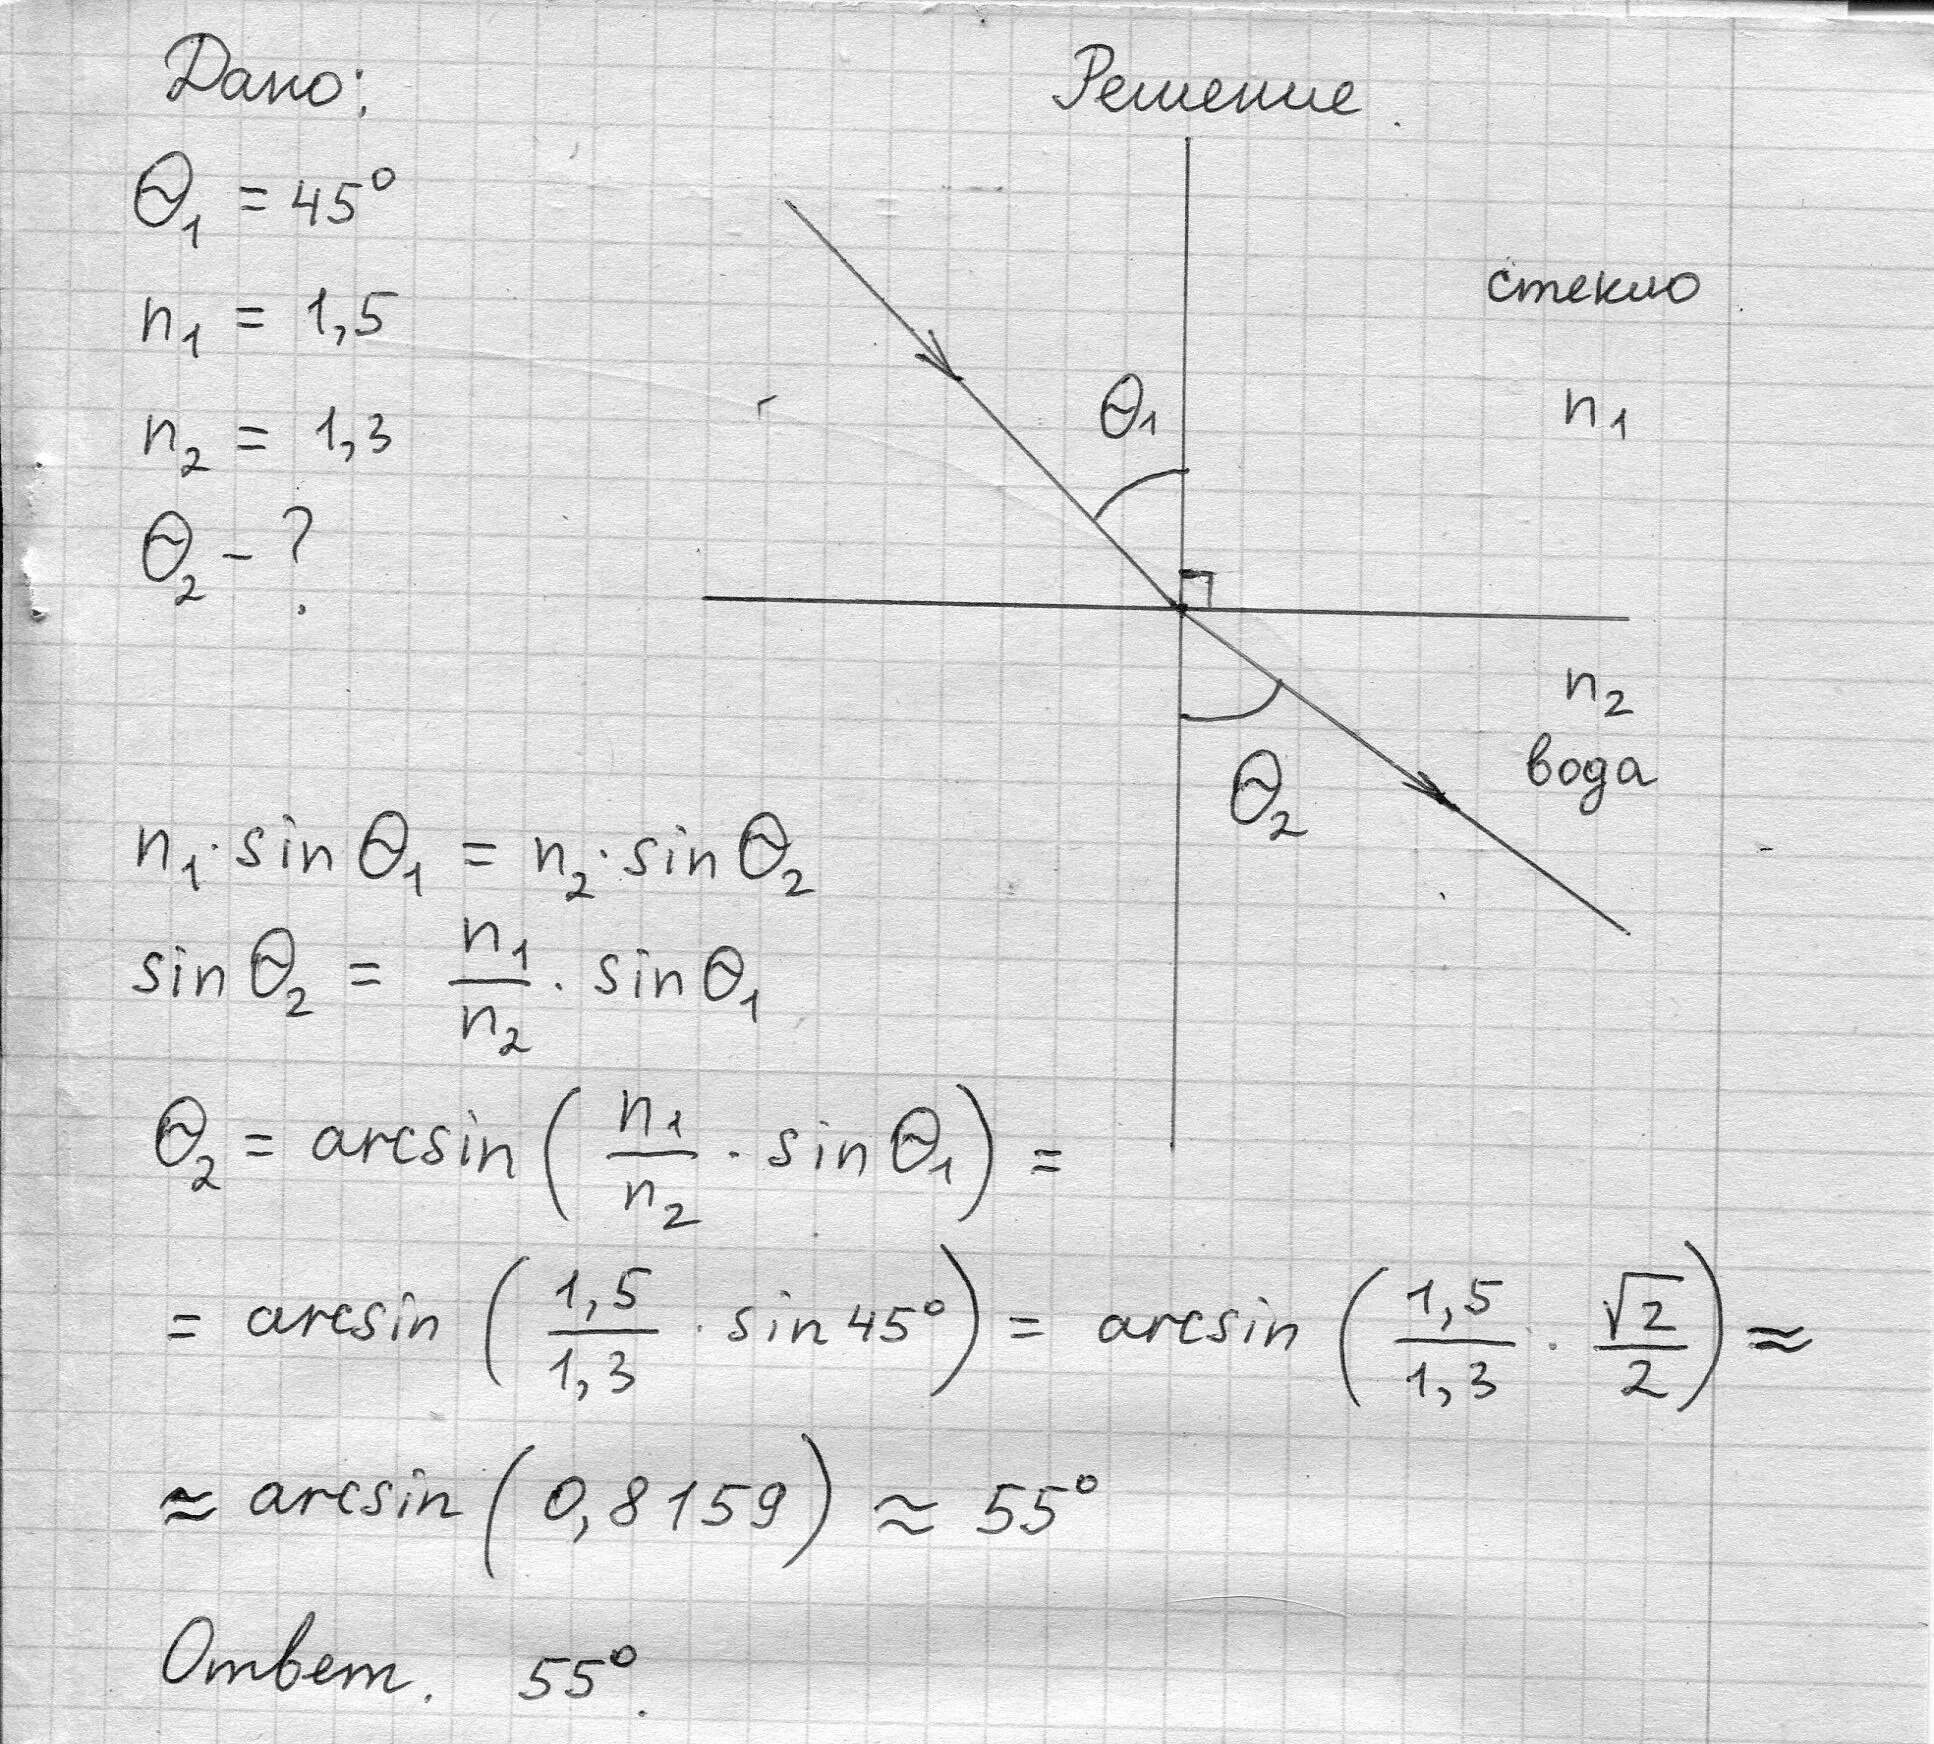 Дано:
Решение.
θ₁ = 45°
n₁ = 1,5
n₂ = 1,3
θ₂ - ?
θ₁
стекло
n₁
n₂
вода
θ₂
n₁·sinθ₁ = n₂·sinθ₂
sinθ₂ = n₁/n₂ · sinθ₁
θ₂ = arcsin(n₁/n₂ · sinθ₁) =
= arcsin(1,5/1,3 · sin45°) = arcsin(1,5/1,3 · √2/2) ≈
≈ arcsin(0,8159) ≈ 55°
Ответ. 55°.